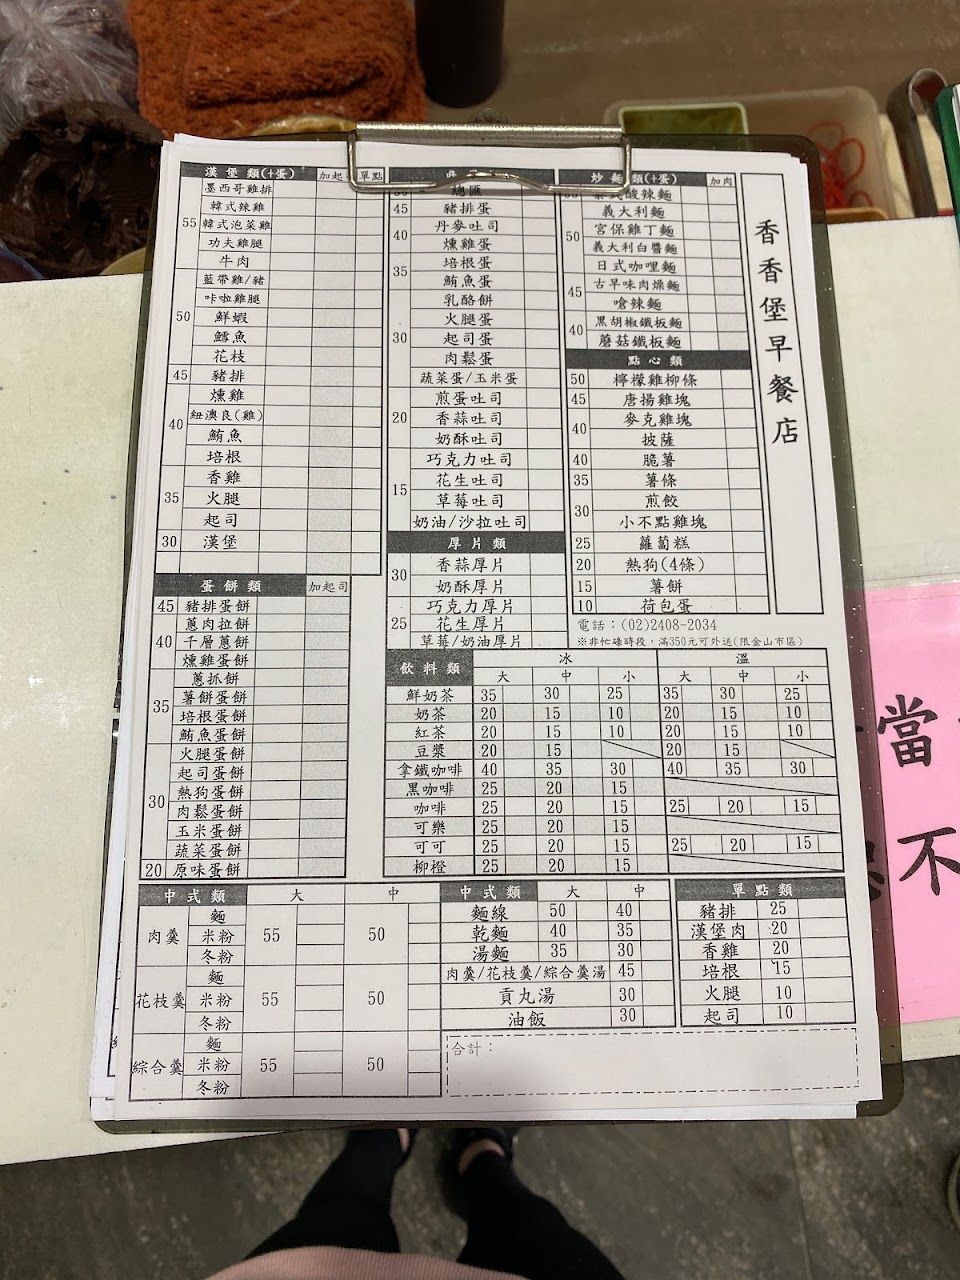 香香堡早餐店
漢堡類(+蛋) 加起 單點
55
墨西哥雞排
韓式辣雞
韓式泡菜雞
功夫雞腿
牛肉
50
藍帶雞/豬
咔啦雞腿
鮮蝦
鱈魚
花枝
45 豬排
40
燻雞
紐澳良(雞)
鮪魚
培根
35
香雞
火腿
起司
30 漢堡
蛋餅類 加起司
45 豬排蛋餅
40
蔥肉拉餅
千層蔥餅
燻雞蛋餅
35
蔥抓餅
薯餅蛋餅
培根蛋餅
鮪魚蛋餅
30
火腿蛋餅
起司蛋餅
熱狗蛋餅
肉鬆蛋餅
玉米蛋餅
蔬菜蛋餅
20 原味蛋餅
總匯
45 豬排蛋
40
丹麥吐司
燻雞蛋
35
培根蛋
鮪魚蛋
30
乳酪餅
火腿蛋
起司蛋
肉鬆蛋
蔬菜蛋/玉米蛋
20
煎蛋吐司
香蒜吐司
奶酥吐司
15
巧克力吐司
花生吐司
草莓吐司
奶油/沙拉吐司
厚片類
30
香蒜厚片
奶酥厚片
25
巧克力厚片
花生厚片
草莓/奶油厚片
炒麵類 加肉
泰式酸辣麵
50
義大利麵
宮保雞丁麵
義大利白醬麵
日式咖哩麵
45
古早味肉燥麵
嗆辣麵
40
黑胡椒鐵板麵
蘑菇鐵板麵
點心類
50 檸檬雞柳條
45 唐揚雞塊
40
麥克雞塊
披薩
40 脆薯
35 薯條
30
煎餃
小不點雞塊
25 蘿蔔糕
20 熱狗(4條)
15 薯餅
10 荷包蛋
電話：(02)2408-2034
※非忙碌時段，滿350元可外送(限金山市區)
飲料類 冰 溫
大 中 小 大 中 小
鮮奶茶 35 30 25 35 30 25
奶茶 20 15 10 20 15 10
紅茶 20 15 10 20 15 10
豆漿 20 15 20 15
拿鐵咖啡 40 35 30 40 35 30
黑咖啡 25 20 15
咖啡 25 20 15 25 20 15
可樂 25 20 15
可可 25 20 15 25 20 15
柳橙 25 20 15
中式類 大 中
肉羹 麵 米粉 冬粉 55 50
花枝羹 麵 米粉 冬粉 55 50
綜合羹 麵 米粉 冬粉 55 50
中式類 大 中
麵線 50 40
乾麵 40 35
湯麵 35 30
肉羹/花枝羹/綜合羹湯 45
貢丸湯 30
油飯 30
單點類
豬排 25
漢堡肉 20
香雞 20
培根 15
火腿 10
起司 10
合計：
當
不